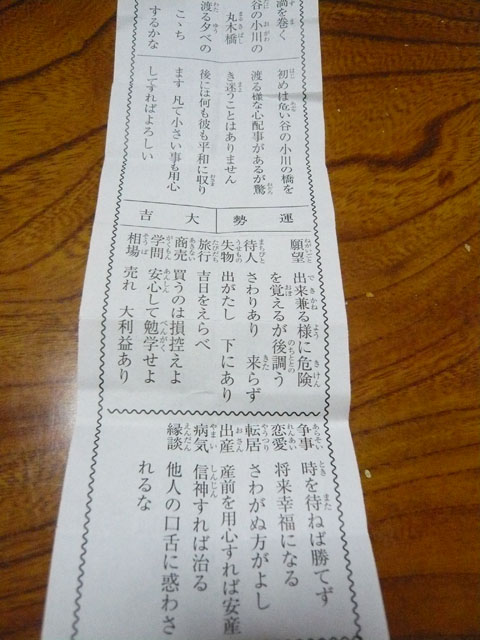 渦を巻く
谷の小川の
丸木橋
渡る夕べの
こゝち
するかな
初めは危い谷の小川の橋を
渡る様な心配事があるが驚
き迷うことはありません
後には何も彼も平和に収り
ます 凡て小さい事も用心
してすればよろしい
運勢 大吉
願望 出来兼る様に危険
を覚えるが後調う
待人 さわりあり 来らず
失物 出がたし 下にあり
旅行 吉日をえらべ
商売 買うのは損控えよ
学問 安心して勉学せよ
相場 売れ 大利益あり
争事 時を待ねば勝てず
恋愛 将来幸福になる
転居 さわがぬ方がよし
出産 産前を用心すれば安産
病気 信神すれば治る
縁談 他人の口舌に惑わさ
れるな